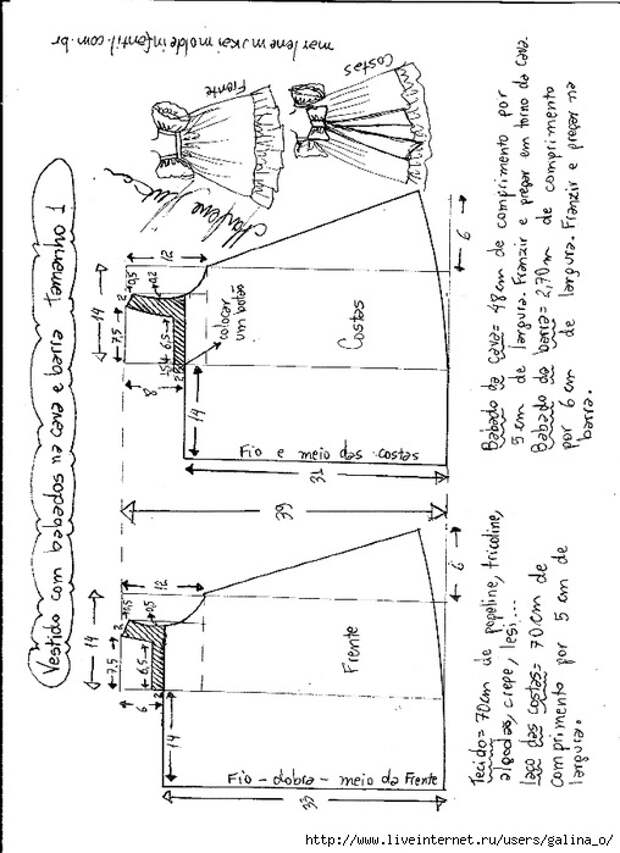 Vestido com babados na cava e barra Tamanho 1
marlenemukaimoldeinfantil.com.br
Marlene
Frente
Costas
14
12
0,5
2
0,5
7,5
6,5
6
2
14
Frente
Fio - dobra - meio da Frente
33
6
39
14
12
0,5
2
0,2
7,5
6,5
8
1,5
4
2
colocar
um botão
14
Costas
Fio e meio das costas
31
6
Tecido= 70cm de popeline, tricoline,
algodão, crepe, lesi...
laço das costas= 70cm de
comprimento por 5 cm de
largura.
Babado da cava= 48cm de comprimento por
5cm de largura. Franzir e pregar em torno da cava.
Babado da barra= 2,70m de comprimento
por 6cm de largura. Franzir e pregar na
barra.
http://www.liveinternet.ru/users/galina_o/